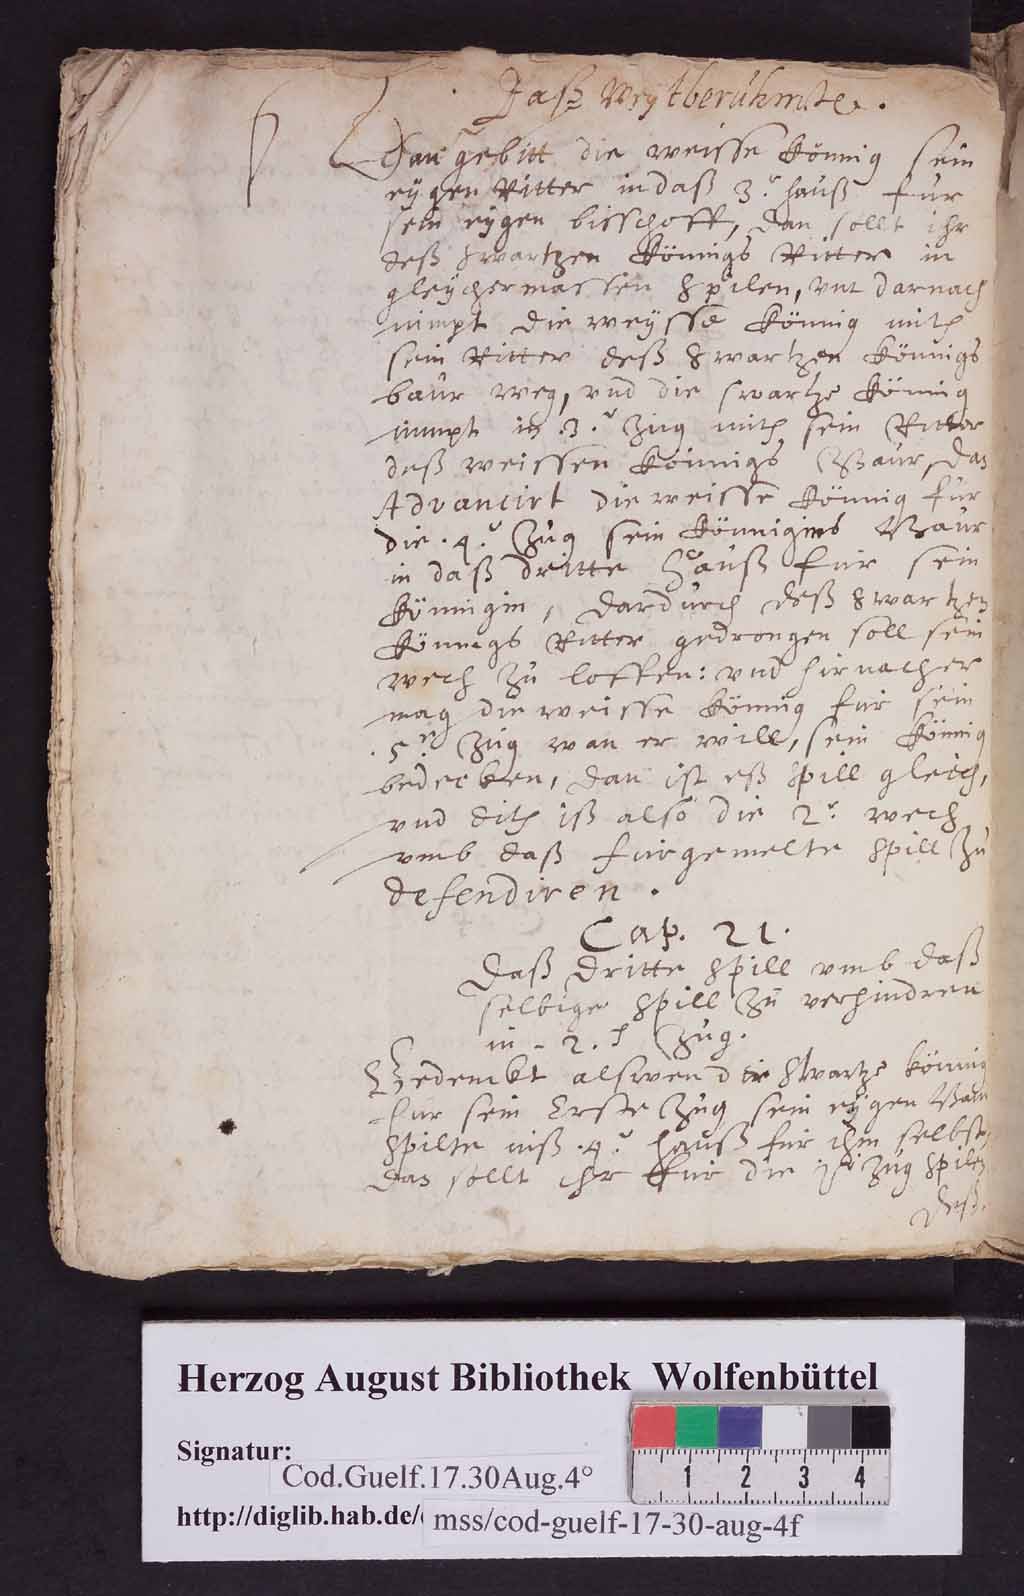 Dasz Weytberühmte.
Dan gebitt die weisse Könnig sein
eÿgen Ritter in daß 3.ͤ hauß fur
sein eÿgen bisschoff, dan sollt ihr
deß swartzen Könnigs Ritter in
gleÿchermassen spilen, vnt darnach
nimpt die weÿsse Könnig mith
sein Ritter deß swartzen Könnigs
baur weg, vnd die swartze Könnig
nimpt in .3.ͤ Zug mith sein Ritter
deß weissen Könnigs Baur, dan
Advancirt die weisse Könnig fur
die .4.ͤ Zug sein Könnigins Baur
in daß dritte Hauß fur sein
Könnigin, dardurch deß swartzen
Könnigs Ritter gedrongen soll sein
wech zu loffen: vnd hirnacher
mag die weisse Könnig fur sein
.5.ͤ Zug wan er will, sein Könnig
bedecken, dan ist eß spill gleich,
vnd dith iß also die 2.ͤ wech
vmb daß furgemelte spill zu
defendiren.
Cap. 21.
Daß dritte spill vmb daß
selbige spill zu verhindren
in - 2. Zug.
Gedenckt alswen die swartze könnig
fur sein Erste Zug sein eÿgen Baur
spilte inß .4.ͤ hauß fur ihm selbst,
dan sollt ihr fur die Zug spilen
deß.
Herzog August Bibliothek Wolfenbüttel
Signatur:
Cod.Guelf.17.30Aug.4°
http://diglib.hab.de/
mss/cod-guelf-17-30-aug-4f
1 2 3 4